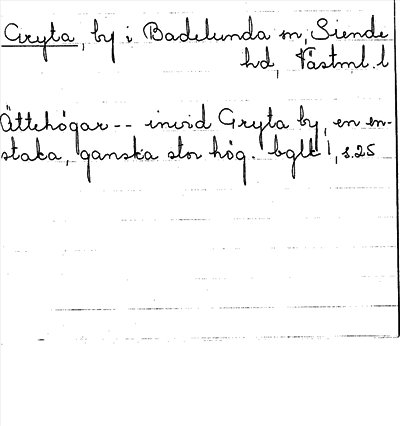 Gryta, by i Badelunda sn, Siende
hd, Västml. l
Ättehögar -- invid Gryta by, en en-
staka, ganska stor hög. bglk 1, s. 25